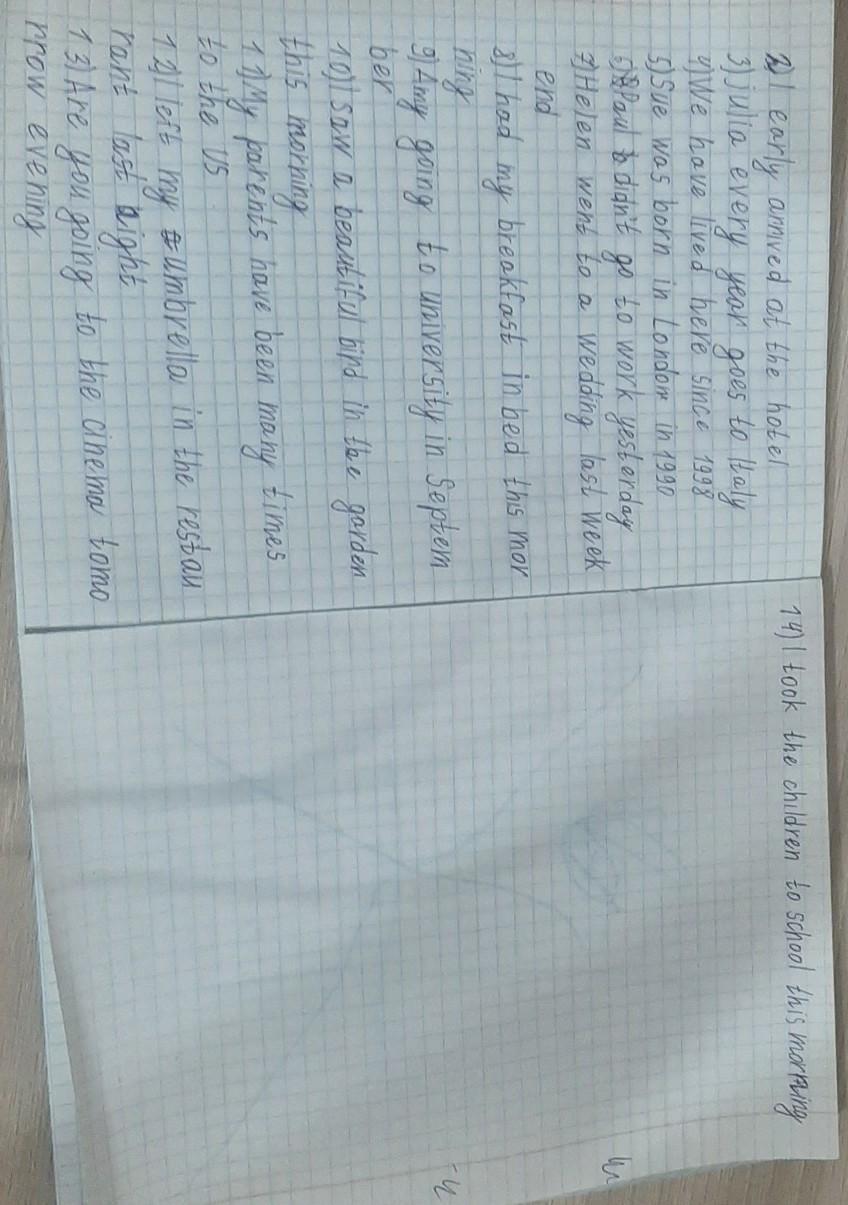 2) I early arrived at the hotel
3) julia every year goes to Italy
4) We have lived here since 1998
5) Sue was born in London in 1990
6) Paul didn't go to work yesterday
7) Helen went to a wedding last week
end
8) I had my breakfast in bed this mor
ning
9) Amy going to university in Septem
ber
10) I saw a beautiful bird in the garden
this morning
11) My parents have been many times
to the US
12) I left my umbrella in the restau
rant last night
13) Are you going to the cinema tomo
rrow evening
14) I took the children to school this morning